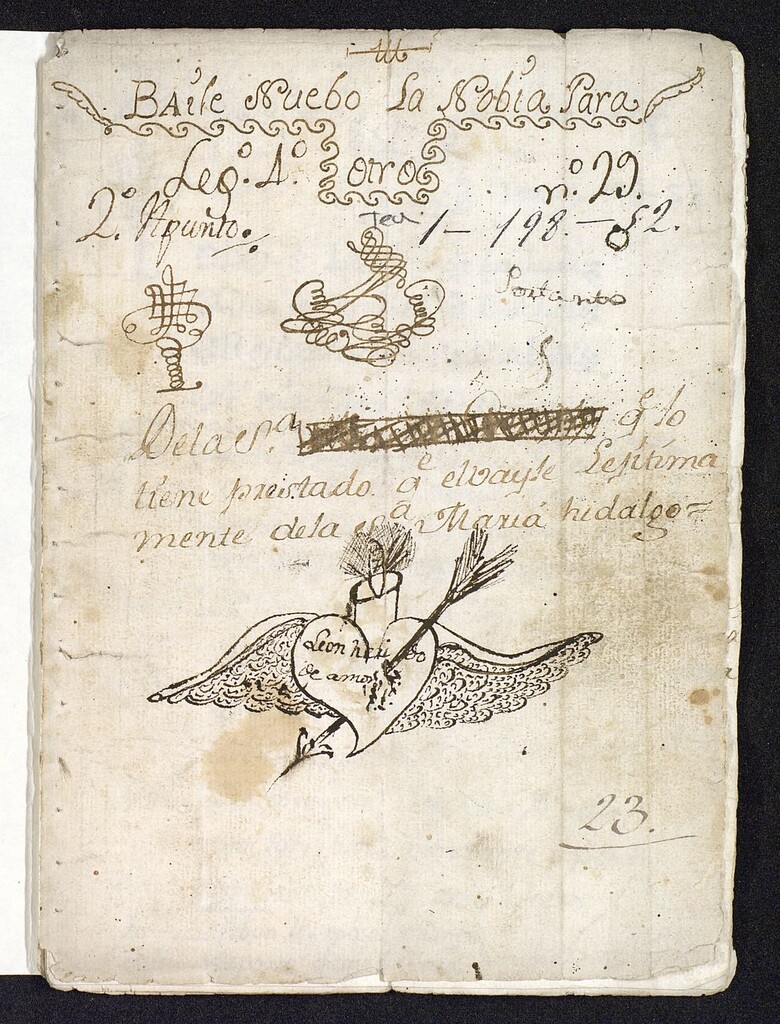 Baile Nuebo La Nobia Para
otro
Leg.º 4.º
nº. 29.
2.º Apunto.
Tea 1 - 198 - 52.
De la S.ra q.e lo
tiene prestado q.e el bayle Lejitima
mente de la S.a Maria hidalgo =
Leon herido
de amor
23.